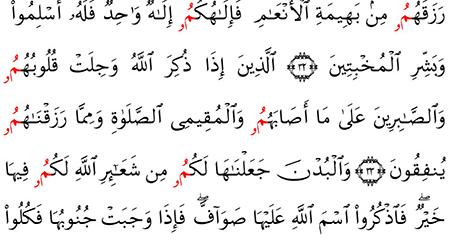 رَزَقَهُمُۥ مِنۢ بَهِيمَةِ اِ۬لْأَنْعَٰمِ فَإِلَٰهُكُمُۥ إِلَٰهٌ وَٰحِدٌ فَلَهُۥ أَسْلِمُواْ
وَبَشِّرِ اِ۬لْمُخْبِتِينَ ٣٢ اَ۬لَّذِينَ إِذَا ذُكِرَ اَ۬للَّهُ وَجِلَتْ قُلُوبُهُمُۥ
وَالصَّٰبِرِينَ عَلَىٰ مَا أَصَابَهُمُۥ وَالْمُقِيمِى اِ۬لصَّلَوٰةِ وَمِمَّا رَزَقْنَٰهُمُۥ
يُنفِقُونَ ٣٣ وَالْبُدْنَ جَعَلْنَٰهَا لَكُمُۥ مِن شَعَٰٓئِرِ اِ۬للَّهِ لَكُمُۥ فِيهَا
خَيْرٌ فَاذْكُرُواْ اُ۪سْمَ اَ۬للَّهِ عَلَيْهَا صَوَآفَّ فَإِذَا وَجَبَتْ جُنُوبُهَا فَكُلُواْ